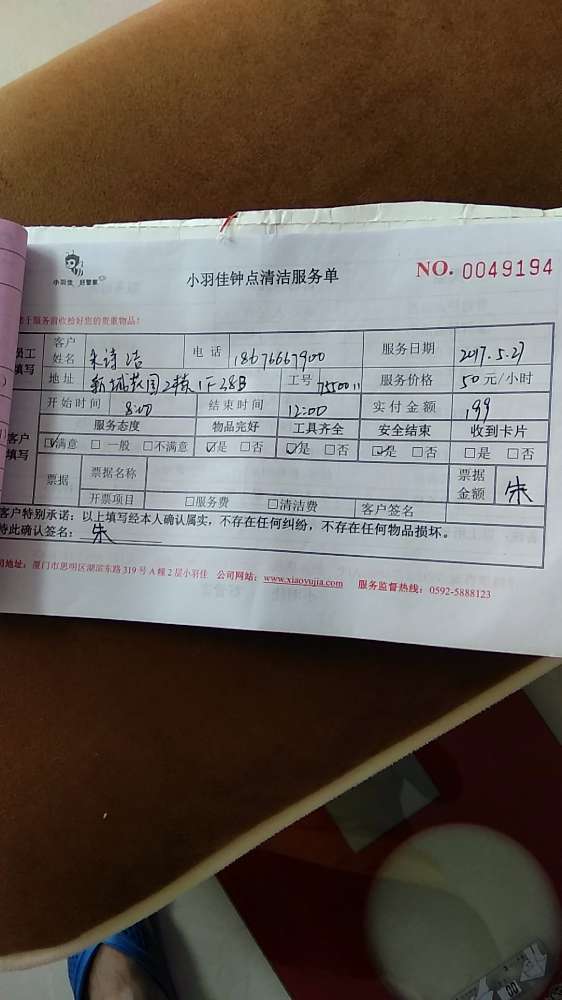 小羽佳 好管家
小羽佳钟点清洁服务单
NO. 0049194
服务前收检好您的贵重物品!
员工填写 客户姓名 朱诗洁 电话 18676667900 服务日期 2017.5.27
地址 2栋1F28B 工号 服务价格 50元/小时
开始时间 8:00 结束时间 12:00 实付金额 199
客户填写 服务态度 物品完好 工具齐全 安全结束 收到卡片
☑满意 □一般 □不满意 ☑是 □否 ☑是 □否 ☑是 □否 □是 □否
票据 票据名称 票据金额 朱
开票项目 □服务费 □清洁费 客户签名
客户特别承诺:以上填写经本人确认属实,不存在任何纠纷,不存在任何物品损坏。
特此确认签名: 朱
司地址:厦门市思明区湖滨东路319号A幢2层小羽佳 公司网站:www.xiaoyujia.com 服务监督热线:0592-5888123